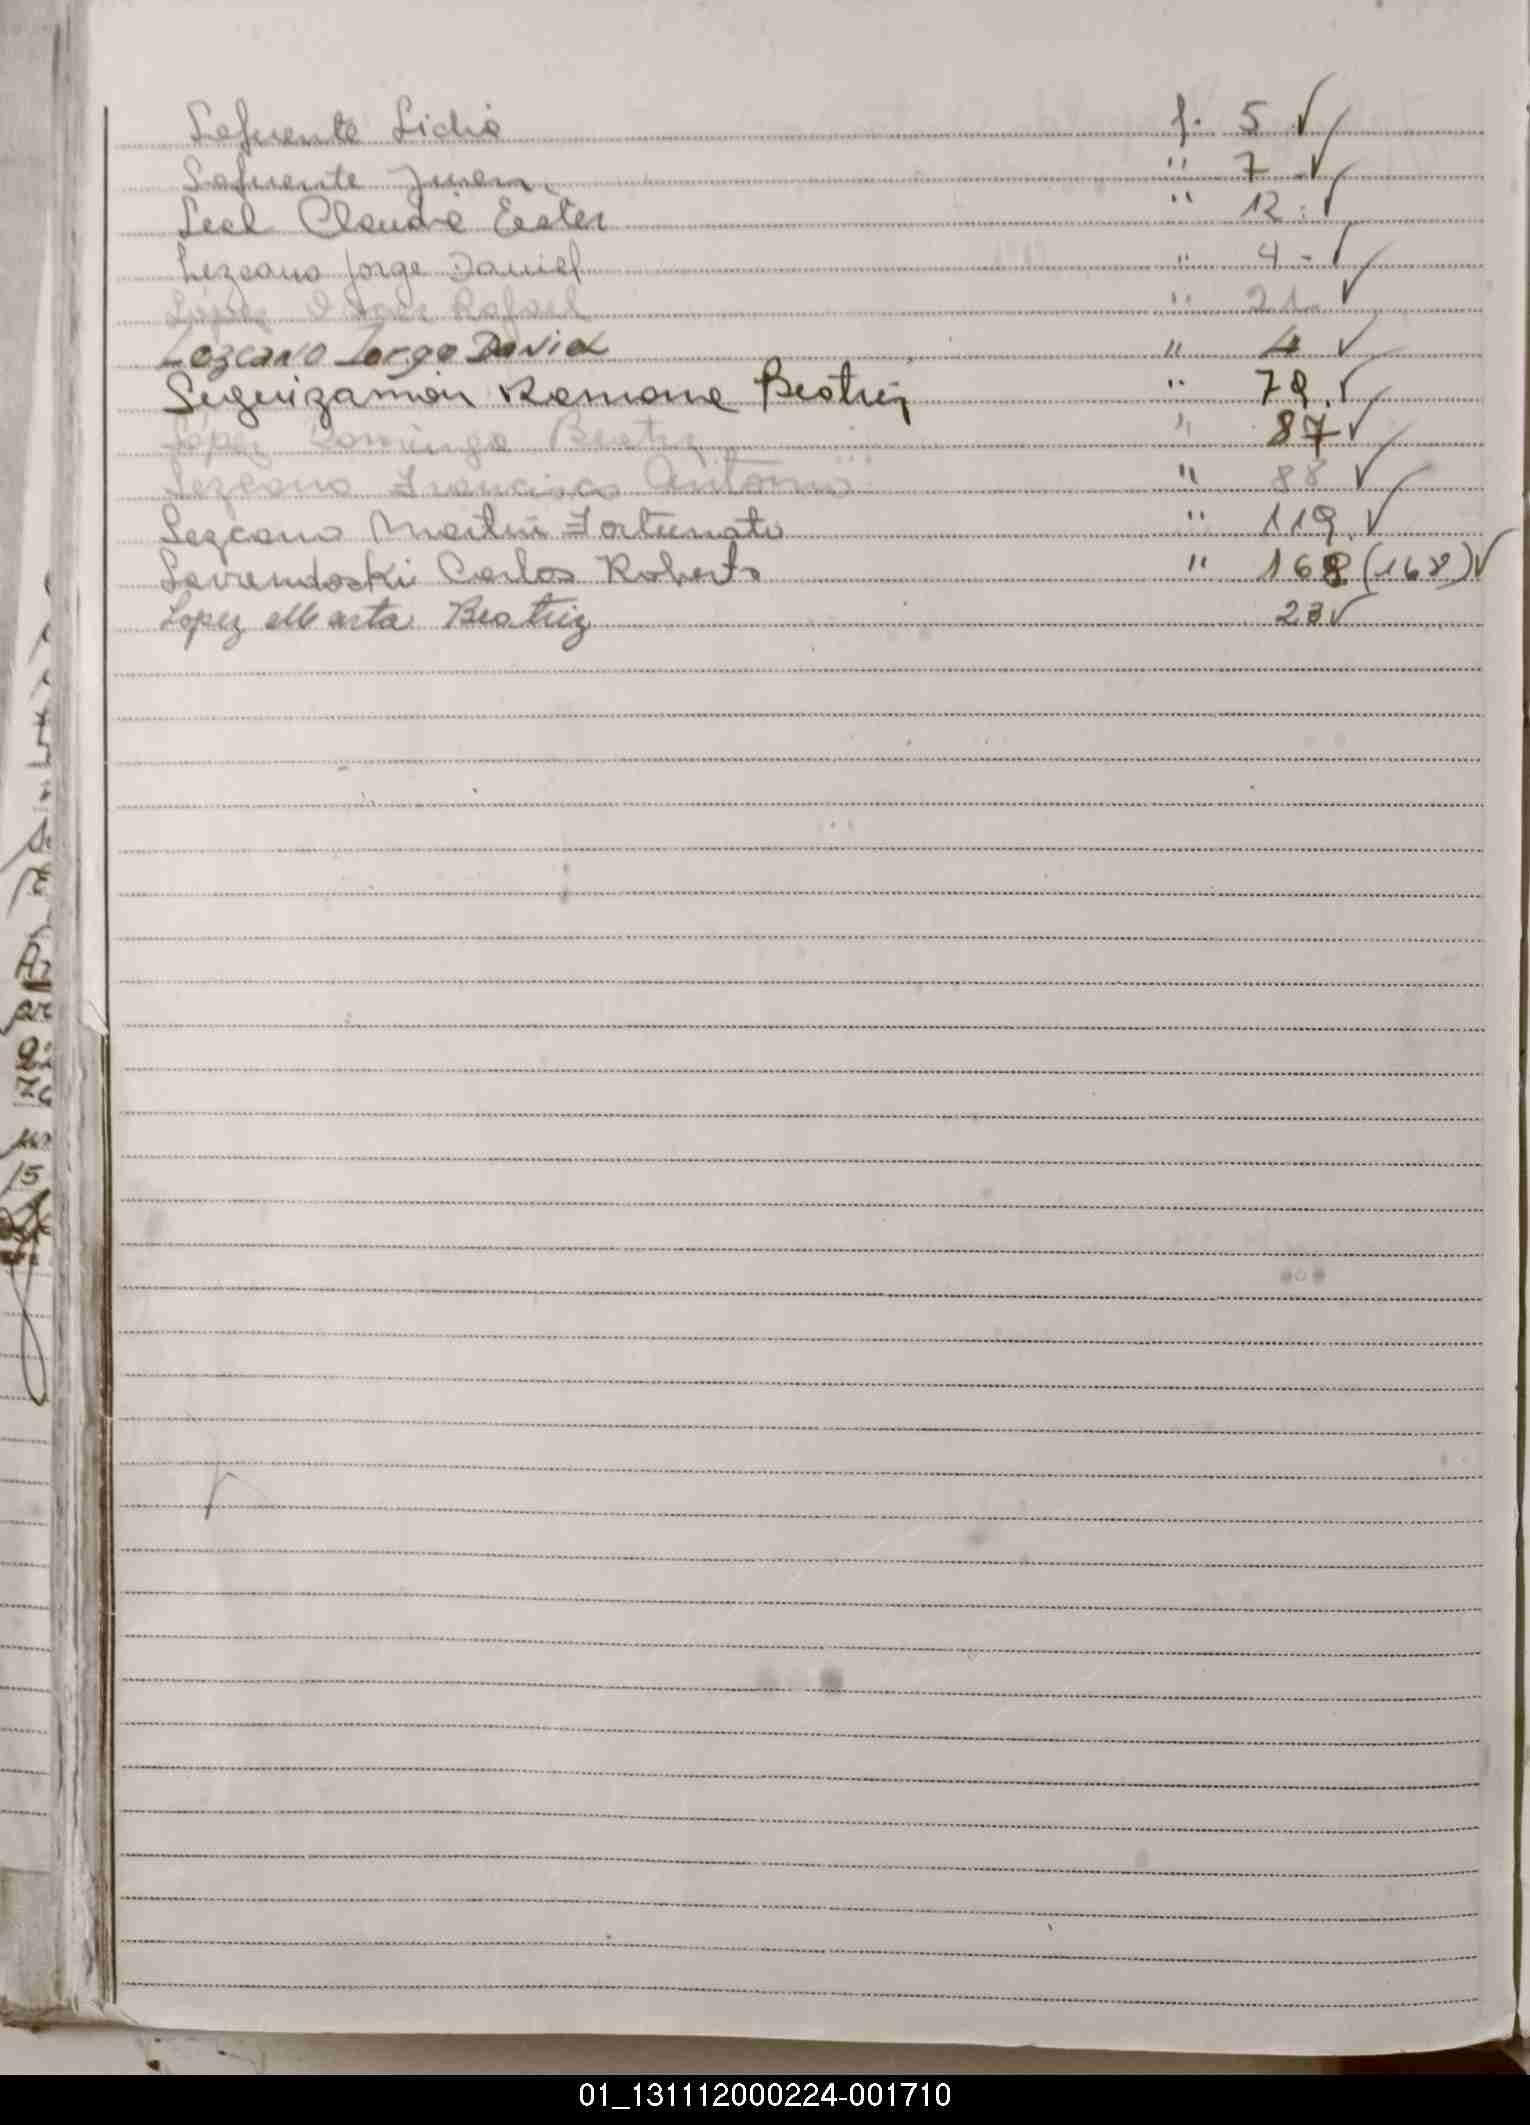 Lafuente Lidia f. 5 ✓
Lafuente Juan. " 7 - ✓
Leal Claudia Ester " 12. ✓
Lezcano Jorge Daniel " 4 - ✓
López Rafael " 21. ✓
Lezcano Jorge David " 4 ✓
Leguizamón Ramona Beatriz " 79. ✓
López Dominga Beatriz " 87 ✓
Lezcano Francisco Antonio " 88 ✓
Lezcano Martín Fortunato " 119. ✓
Lavrendoski Carlos Roberto " 168 (168) ✓
Lopez Marta Beatriz 23 ✓
01_131112000224-001710